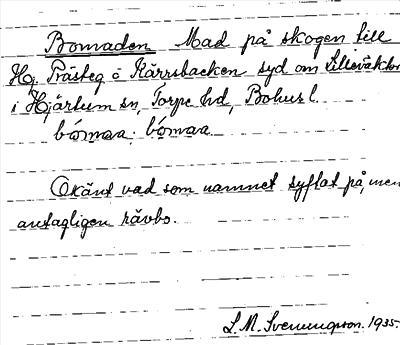 Bomaden Mad på skogen till
Hj. Prästeg o Kärrsbacken syd om
i Hjärtum sn, Torpe hd, Bohusl.
bómaa. bómaa
Okänt vad som namnet syftat på, men
antagligen rävbo.
S. M. Svenungsson. 1935.